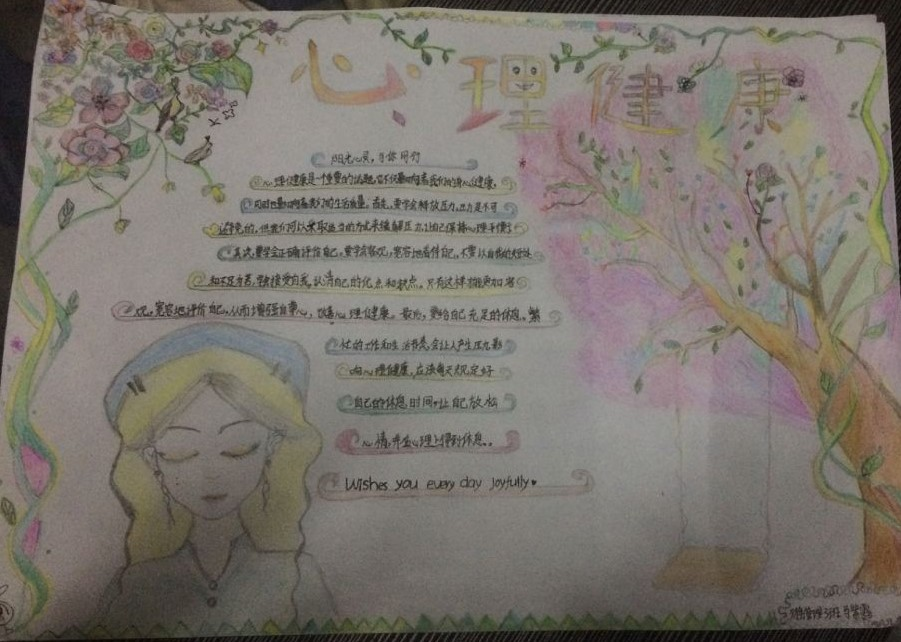 心理健康
阳光心灵，与你同行
心理健康是一个重要的话题，它不仅影响着我们的身心健康，
同时也影响着我们的生活质量。首先，要学会释放压力，压力是不可
避免的，但我们可以采取适当的方式来缓解压力，让自己保持心理平衡；
其次，要学会正确评价自己，要学会客观，宽容地看待自己，不要以自我的
和不足为耻，学会接受自我，认清自己的优点和缺点，只有这样才能更加客
观，宽容地评价自己，从而增强自尊心，改善心理健康。最后，要给自己充足的休息，繁
忙的工作和生活节奏，会让人产生压力，影
响心理健康，应该每天规定好
自己的休息时间，让自己放松
心情，并在心理上得到休息。
Wishes you every day joyfully